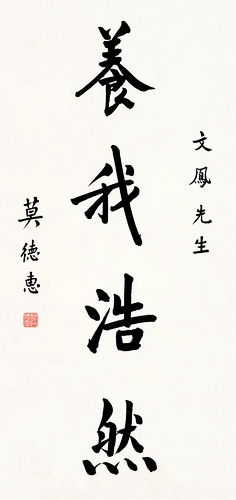 文鳳先生
養我浩然
莫德惠